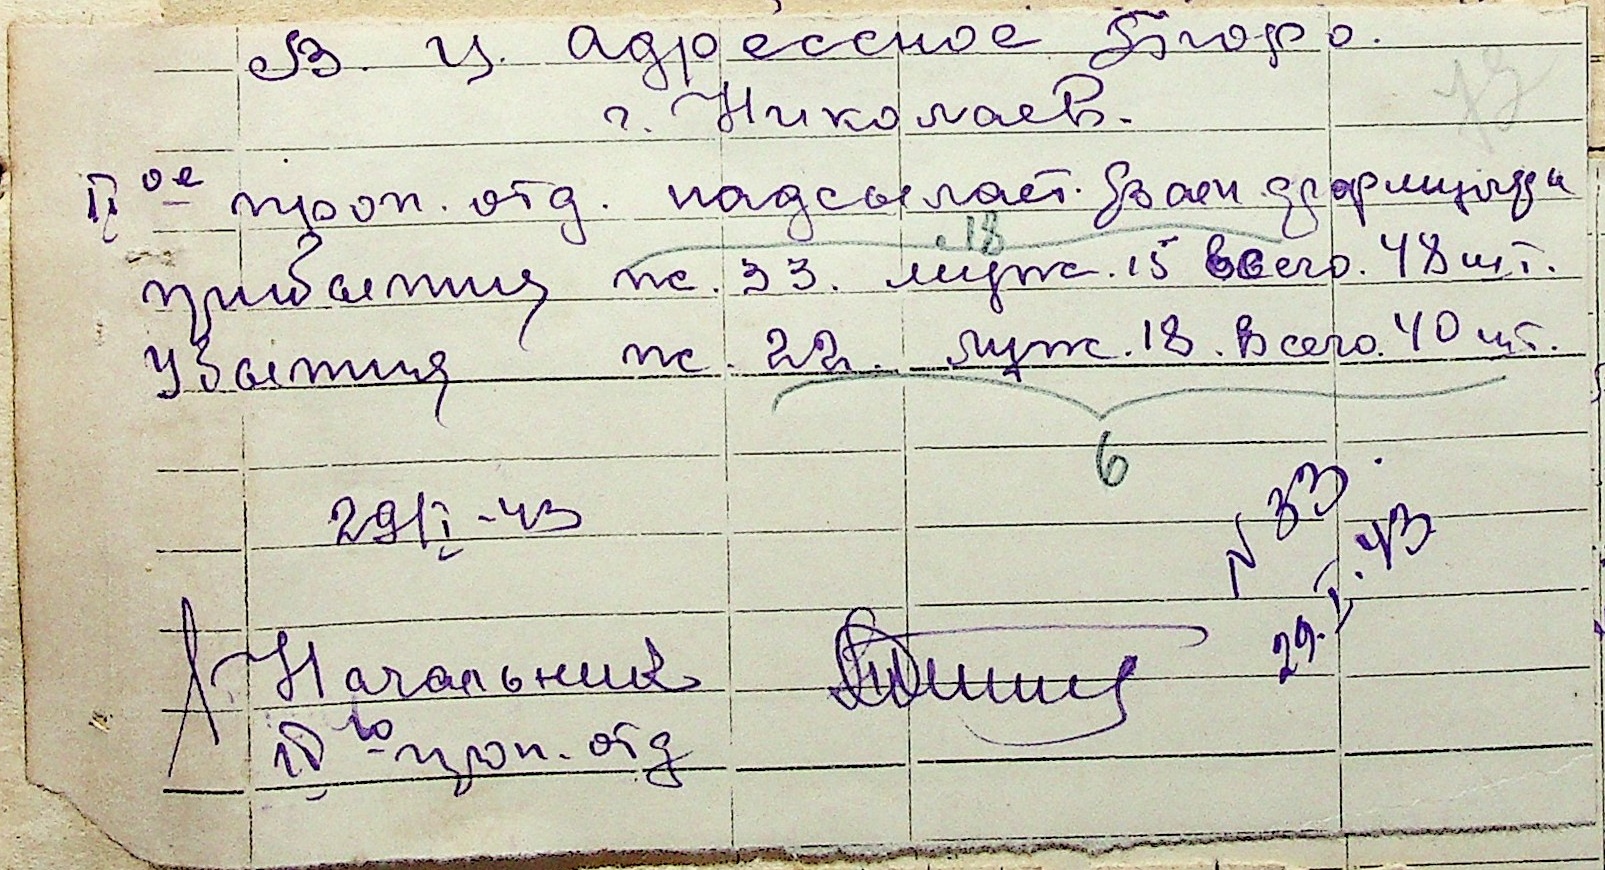 В. Ц. Адрессное Бюро.
г. Николаев.
II ое проп. отд. надсылает Вам формуляри
18
прибытия ж. 33. муж. 15 всего. 48 шт.
Убытия ж. 22. муж. 18. Всего. 40 шт.
6
29/I-43
N 33.
29.I.43
Начальник
II го проп. отд